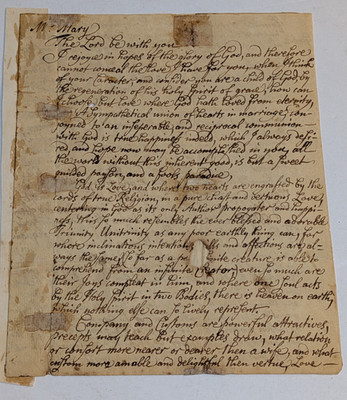 Mrs Mary
The Lord be with you
I rejoyce in hopes of the glory of God, and therefore
cannot conceal the Love I have for you, when I think
of your Caracter, and consider you are a child of God, by
the regeneration of his Holy Spirit of grace, how can
I choose but love where God hath loved from eternity,
A Sympathetical union of hearts in marriage, con-
joyned to an inseperable and reciprocal communion
with God is true happiness indeed, which I always desi-
red and hope now may be accomplished in you, all
the world without this inherent good, is but a sweet
guilded poyson, and a fools paradice,
God is Love, and where two hearts are engrafted by the
Lords of true Religion, in a pure chast and vertuous Love,
centering in God as the only Author propagator and
this so much resembles the ever blessed and adorable
Trinunity Unitrinity as any poor earthly king can, for
where inclinations intentions and affections are al-
ways the same, so far as a finite creature is able to
comprehend from an infinite Creator, even so much are
their Joys compleat in him, and where one soul acts
by the Holy Spirit in two Bodies, there is heaven on earth,
which nothing else can so lively represent.
Company and Customs are powerful attractives,
precepts may teach but examples draw, what relation
or comfort more nearer or dearer then a wife, and what
custom more amable and delightful then vertue, Love